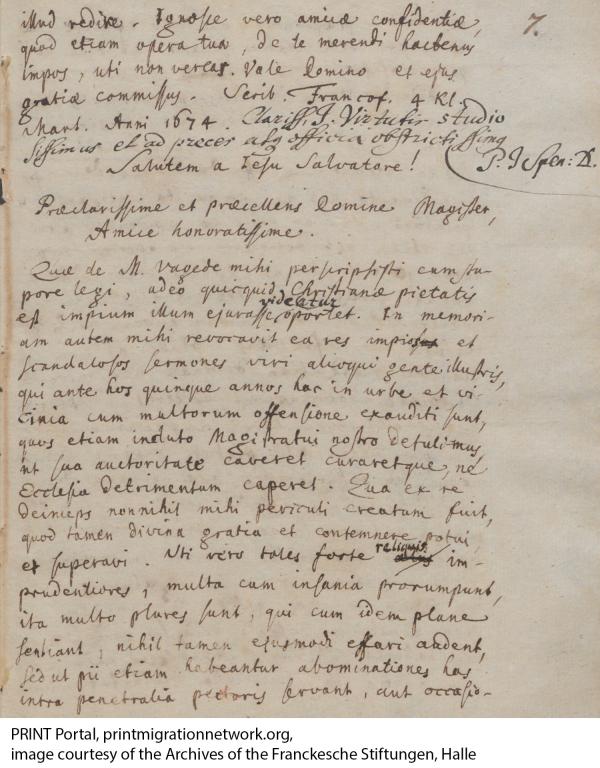 7.
illud redire. Ignosce vero amicæ confidentiæ,
quod etiam opera tua, de te merendi hactenus
impos, uti non verear. Vale Domino et ejus
gratiæ commissus. Scrib. Francof. 4 Kl.
Mart. Anni 1674. Clariss. T. Virtutis studio
sissimus et ad preces atq officia obstrictissimq
P. J Spen: D.
Salutem a Jesu Salvatore!
Præclarissime et præcellens Domine Magister,
Amice honoratissime.
Quæ de M. Vagede mihi perscripsisti cum stu-
pore legi, adeo quicquid Christianæ pietatis
videatur
est impium illum ejurasse oportet. In memori-
am autem mihi revocavit ea res impios et
scandalosos sermones viri alioqui gente illustris,
qui ante hos quinque annos hac in urbe et vi-
cinia cum multorum offensione exauditi sunt,
quos etiam incluto Magistratui nostro detulimus,
ut sua auctoritate caveret curaretque, ne
Ecclesia detrimentum caperet. Qua ex re
deinceps nonnihil mihi periculi creatum fuit,
quod tamen divina gratia et contemnere potui
et superavi. Uti vero tales forte reliquis im-
prudentiores, multa cum insania prorumpunt,
ita multo plures sunt, qui cum idem plane
sentiant, nihil tamen ejusmodi effari audent,
sed ut pii etiam habeantur abominationes has
intra penetralia pectoris servant, aut occasio-
PRINT Portal, printmigrationnetwork.org,
image courtesy of the Archives of the Franckesche Stiftungen, Halle